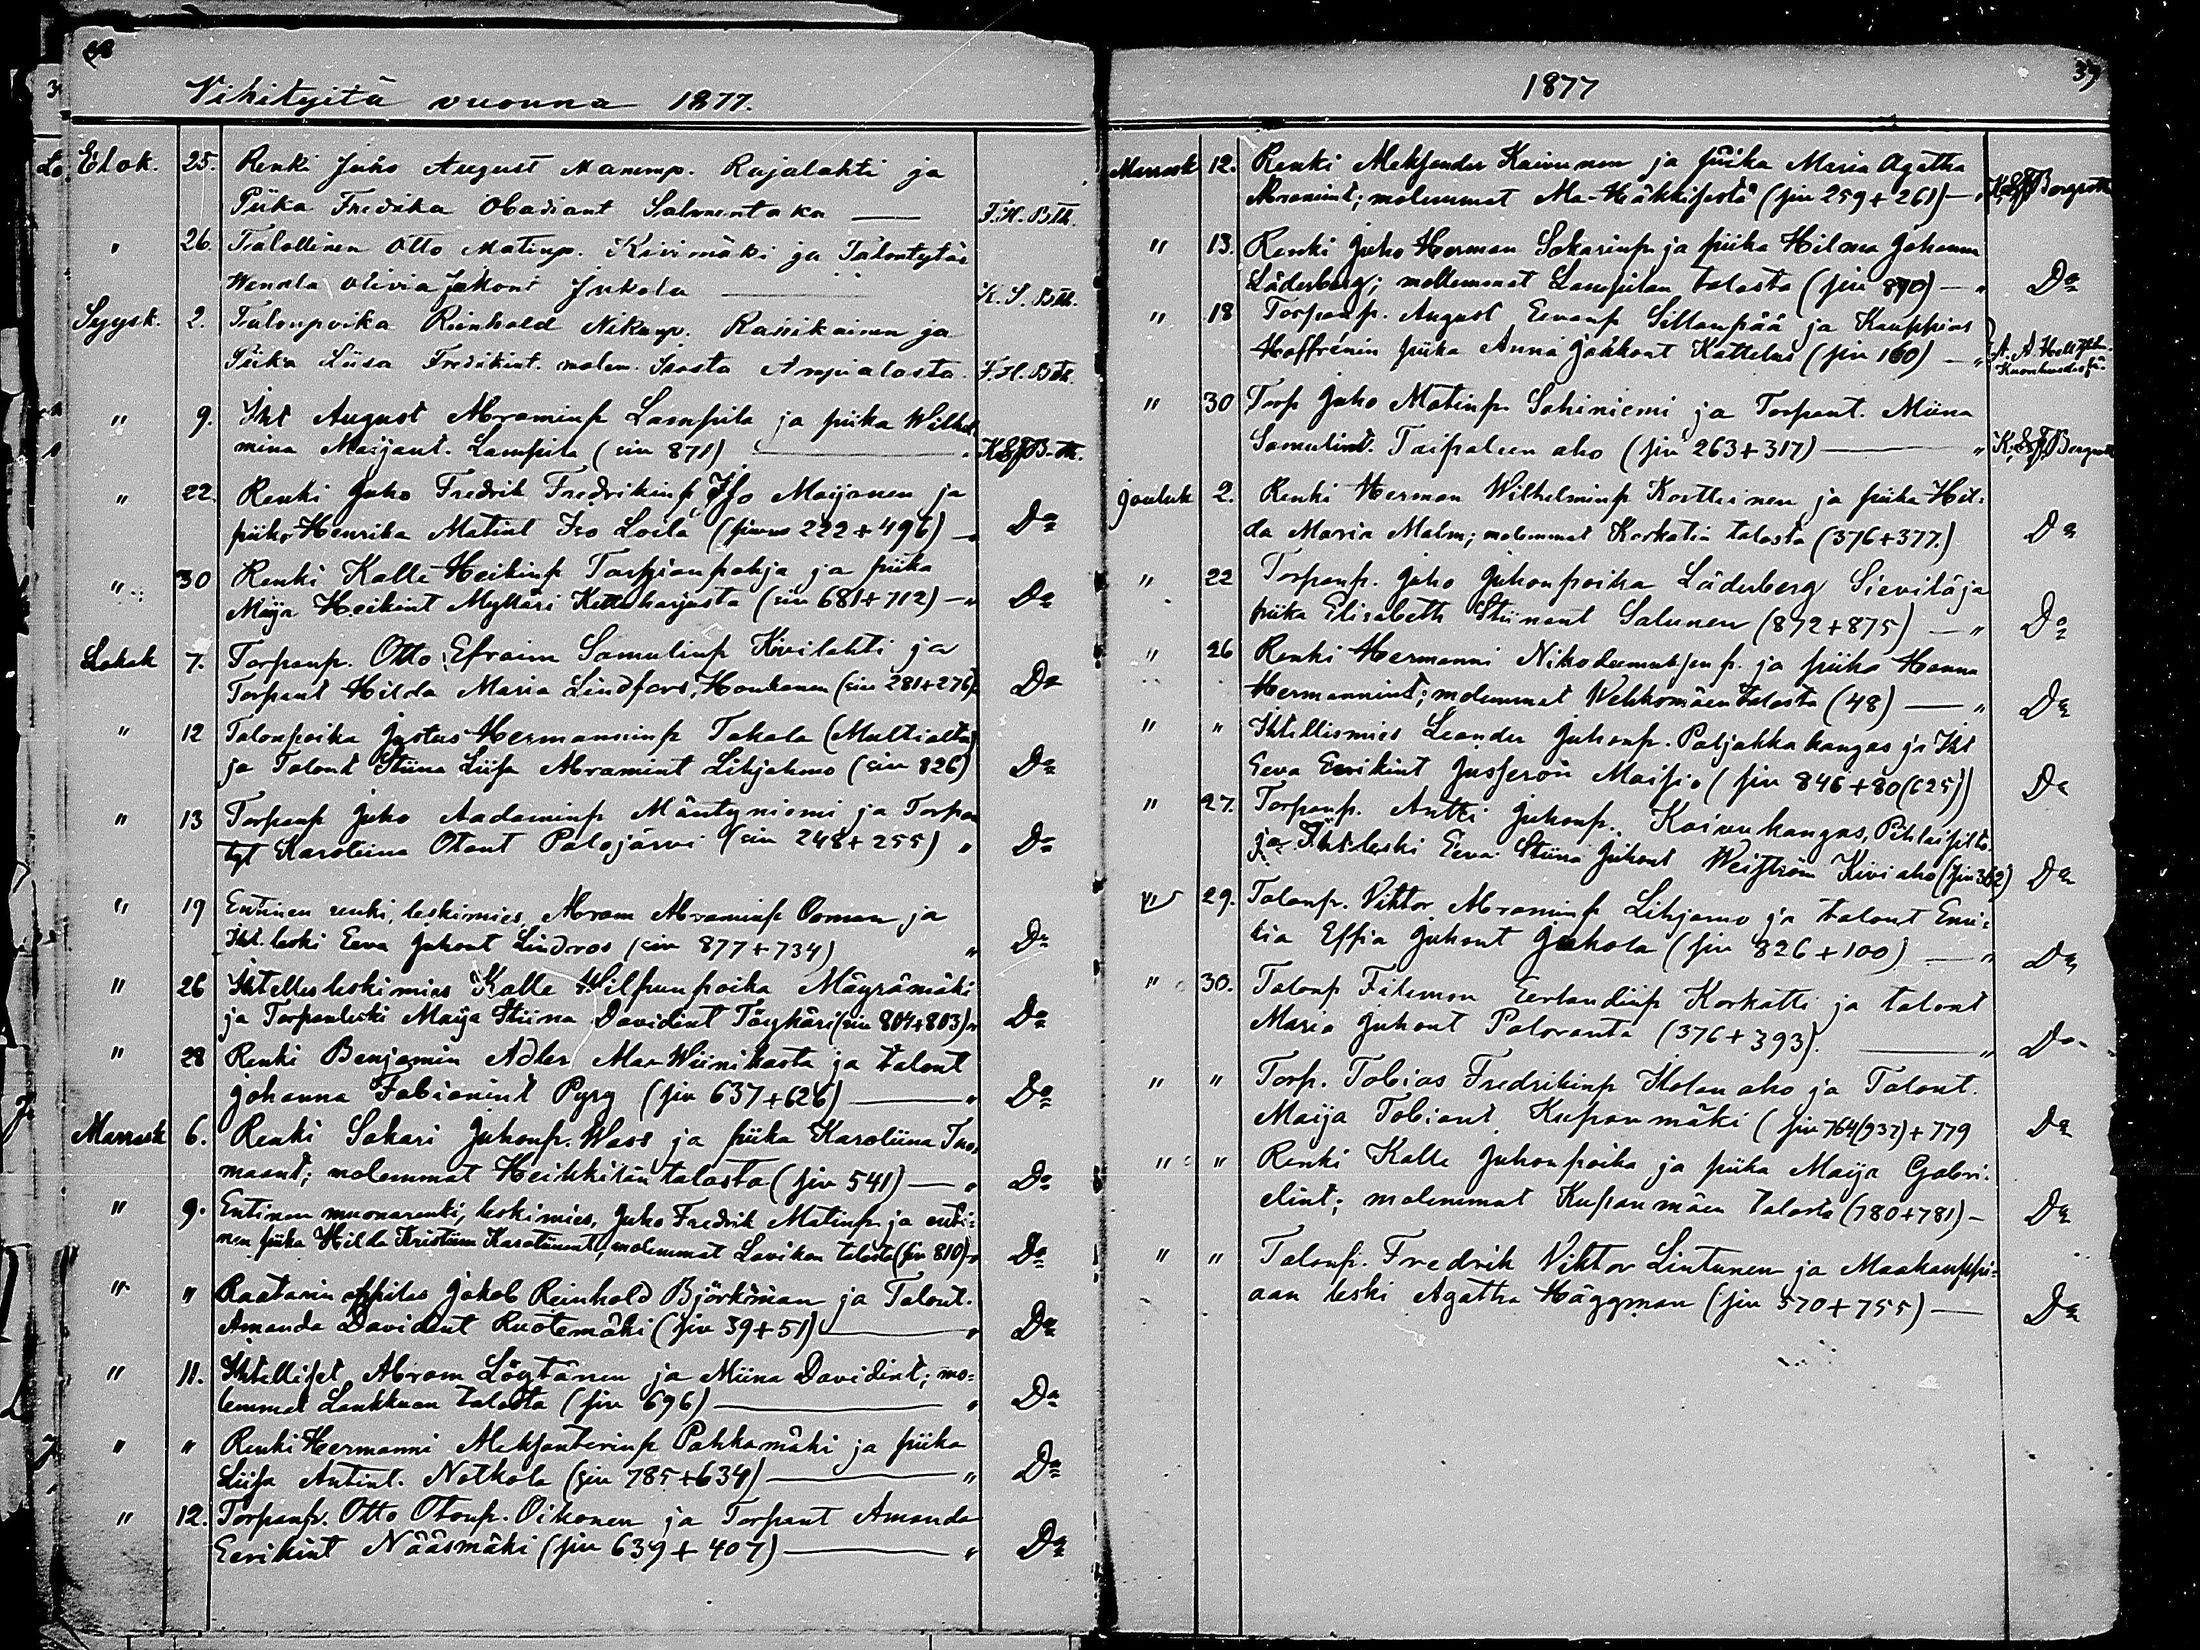 Vihityitä vuonna 1877.
Elok. 25. Renki Juho August Mananp. Rajalahti ja
Piika Fredika Obadiant Salmentaka — F. H. B-th.
" 26. Talollinen Otto Matinp. Kivimäki ja Talontytär
Wendla Olivia Jakont Jukola — K. S. B-th.
Syysk. 2. Talonpoika Reinhold Nikunp. Rassikainen ja
Piika Liisa Fredikint. molem. Ampialasta. F. H. B-th.
" 9. Iht August Abraminp Lampila ja piika Wilhel-
mina Maijant. Lampila (siv 871) — K S F B-th.
" 22. Renki Juho Fredrik Fredrikinp, Iso Maijanen ja
piika Henrika Matint Iso Loila (sivu 222 + 496) — Do
" 30 Renki Kalle Heikinp Tarpianpohja ja piika
Maija Heikint Mylläri Kettuharjusta (siv 681 + 712) — " Do
Lokak 7. Torpanp. Otto Efraim Samulinp Kivilahti ja
Torpant Hilda Maria Lindfors, Honkonen (siv 281+276) Do
" 12 Talonpoika Justus Hermanninp Takala (Multialta)
ja Talont Stiina Liisa Abramint Lihjahmo (siv 826) Do
" 13 Torpanp Juho Aadaminp Mäntyniemi ja Torpan
tyt Karoliina Otont Palojärvi (siv 248 + 255) " Do
" 19 Entinen renki, leskimies, Abram Abraminp Oman ja
Iht. leski Eeva Juhont Lindroos (siv 877 + 734) " Do
" 26 Ihtelles leskimies Kalle Wilpunpoika Mäyrämäki
ja Torpanleski Maija Stiina Davidint Töyhäri (siv 804+803) " Do
" 28 Renki Benjamin Adler Ma-Wiinikasta ja talont
Johanna Fabianint Pyry (siv 637 + 626) — " Do
Marrask 6. Renki Sakari Juhonp. Wass ja piika Karoliina Tuo-
maant; molemmat Heikkilän talosta (siv 541) — " Do
" 9. Entinen muonarenki, leskimies, Juho Fredrik Matinp. ja enti-
nen piika Hilda Kristiina Karoliinant, molemmat Lavikan talosta (siv 810) " Do
" " Raatarin oppilas Jakob Reinhold Björkman ja Talont.
Amanda Davidint Ruotemäki (siv 39 + 51) — " Do
" 11. Ihtelliset Abram Löytänen ja Miina Davidint; mo-
lemmat Lankkuan talosta (siv 696) — " Do
" " Renki Hermanni Aleksanterinp Pahkamäki ja piika
Liisa Antint. Notkola (siv 785 + 634) — " Do
" 12. Torpanp. Otto Otonp. Oikonen ja Torpant Amanda
Eerikint Nääsmäki (siv 639 + 407) — " Do
1877
39
Marrask 12. Renki Aleksander Kaivunen ja piika Maria Agatha
Abramint; molemmat Ma-Häkkisestä (siv 259 + 261) — " K. S. F. Bergroth
" 13. Renki Juho Herman Sakarinp. ja piika Hilma Johanna
Läderberg; molemmat Lampilan talosta (siv 890) — " Do
" 18 Torpanp. August Eevanp Sillanpää ja Kauppias
Hoffrénin piika Anna Jakkont Kattelus (siv 160) — "
" 30 Torp Juho Matinp. Sahiniemi ja Torpant. Miina
Samulint. Taipaleen aho (siv 263 + 317) — " K. S. F. Bergroth
Jouluk 2. Renki Herman Wilhelminp Kortteinen ja piika Hil-
da Maria Malm; molemmat Korkatin talosta (376 + 377.) Do
" 22 Torpanp. Juho Juhonpoika Läderberg Sievilä ja
piika Elisabeth Stiinant Salunen (872 + 875) — " Do
" 26 Renki Hermanni Nikodeemuksen p. ja piika Hanna
Hermannint; molemmat Wehkomäen talosta (48) — " Do
" " Ihtellismies Leander Juhonp. Paljakkakangas ja Iht
Eeva Eerikint Jusserön Maisio (siv 846 + 80 (625)) Do
" 27. Torpanp. Antti Juhonp. Koivukangas, Pihlaisilta
ja Iht leski Eeva Stiina Juhont Weiström Kiviaho (siv 362) Do
" 29. Talonp. Viktor Abraminp Lihjamo ja talont Emi-
lia Effia Juhont Juhola (siv 826 + 100) — " Do
" 30. Talonp Filemon Eerlandinp Korkatti ja talont
Maria Juhont Paloranta (376 + 393). — " Do
" " Torp. Tobias Fredrikinp Ilolan aho ja Talont.
Maija Tobiant Kupanmäki (siv 764 (937) + 779 Do
" " Renki Kalle Juhonpoika ja piika Maija Gabri-
elint; molemmat Kupanmäen talosta (780 + 781) — Do
" " Talonp. Fredrik Viktor Lintunen ja Maakauppi-
aan leski Agatha Häggman (siv 570 + 755) — Do